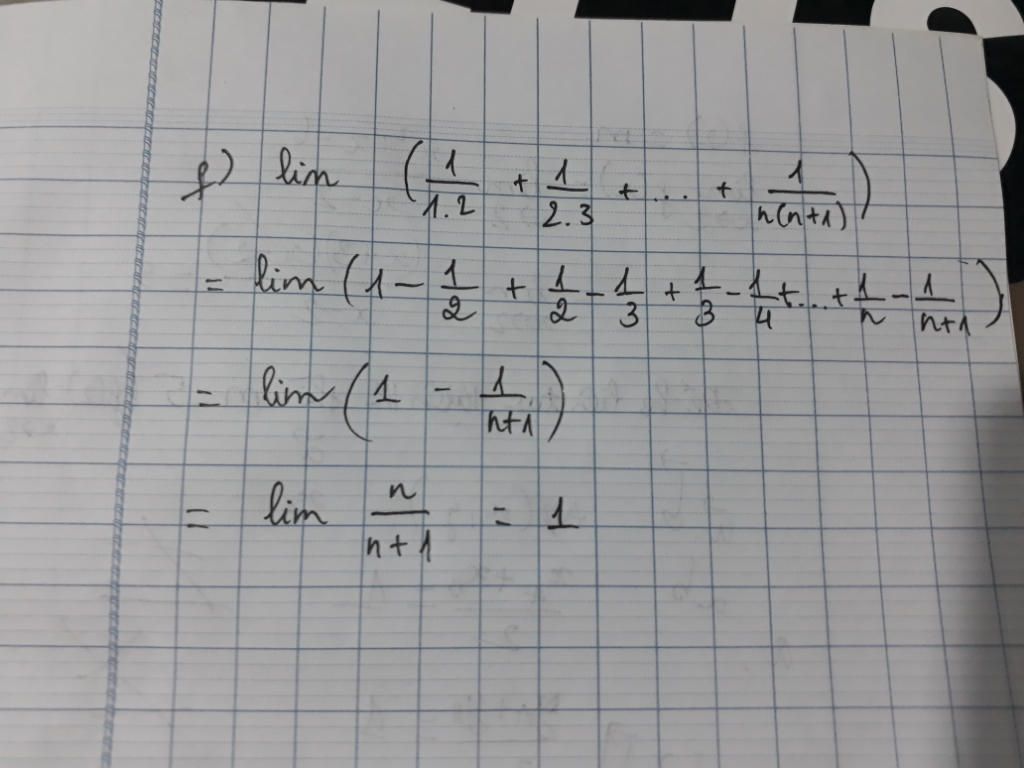 f) lim (1/1.2 + 1/2.3 + ... + 1/n(n+1))
= lim (1 - 1/2 + 1/2 - 1/3 + 1/3 - 1/4 + ... + 1/n - 1/n+1)
= lim (1 - 1/n+1)
= lim n/n+1 = 1